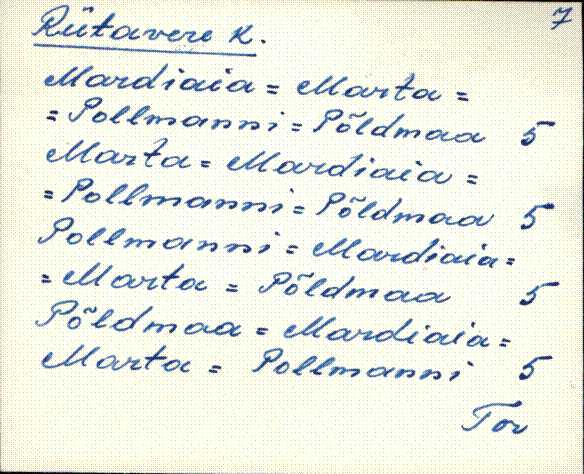 7
Rütavere k.
Mardiaia = Marta =
= Pollmanni = Põldmaa 5
Marta = Mardiaia =
= Pollmanni = Põldmaa 5
Pollmanni = Mardiaia =
= Marta = Põldmaa 5
Põldmaa = Mardiaia =
Marta = Pollmanni 5
Tor